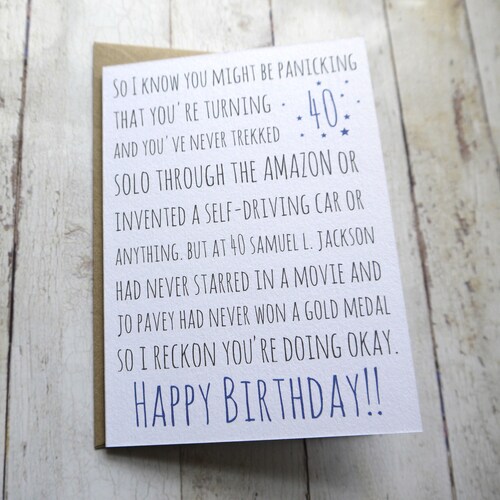 SO I KNOW YOU MIGHT BE PANICKING
THAT YOU'RE TURNING 40
AND YOU'VE NEVER TREKKED
SOLO THROUGH THE AMAZON OR
INVENTED A SELF-DRIVING CAR OR
ANYTHING. BUT AT 40 SAMUEL L. JACKSON
HAD NEVER STARRED IN A MOVIE AND
JO PAVEY HAD NEVER WON A GOLD MEDAL
SO I RECKON YOU'RE DOING OKAY.
HAPPY BIRTHDAY!!